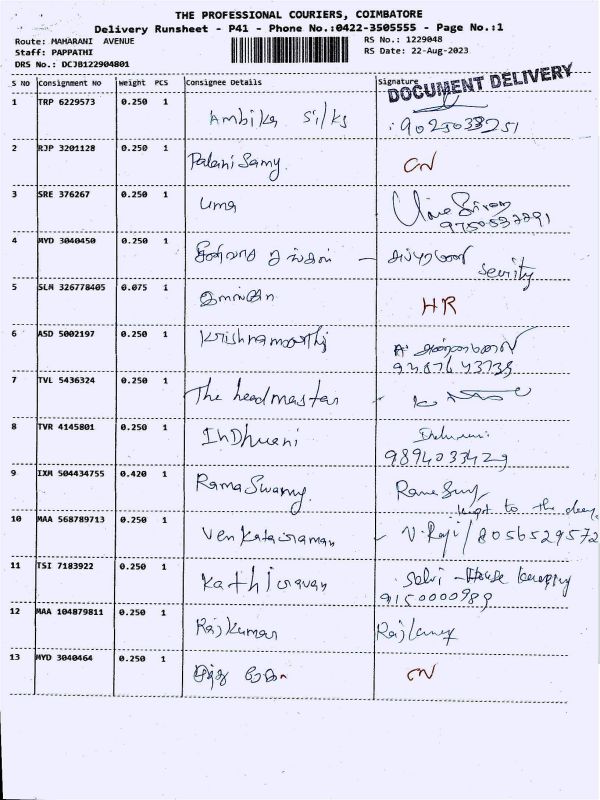 THE PROFESSIONAL COURIERS, COIMBATORE
Delivery Runsheet - P41 - Phone No.:0422-3505555 - Page No.:1
Route: MAHARANI AVENUE
RS No.: 1229048
Staff: PAPPATHI
RS Date: 22-Aug-2023
DRS No.: DCJB122904801
S NO Consignment No Weight PCS Consignee Details Signature
DOCUMENT DELIVERY
1 TRP 6229573 0.250 1 Ambika Silks
2 RJP 3201128 0.250 1 Palani Samy. CN
3 SRE 376267 0.250 1 uma
9750537791
4 MYD 3040450 0.250 1
5 SLM 326778405 0.075 1 HR
6 ASD 5002197 0.250 1 Krishnamoorthy
7 TVL 5436324 0.250 1 The headmaster
8 TVR 4145801 0.250 1 InDhurani
9894033429
9 IXM 504434755 0.420 1 RamaSwamy.
kept to the
10 MAA 568789713 0.250 1 Venkatairaman V. Raji / 8056529572
11 TSI 7183922 0.250 1 Kathiravan Selvi - House
9150000989
12 MAA 104879811 0.250 1 Rajkumar
13 MYD 3040464 0.250 1 CN